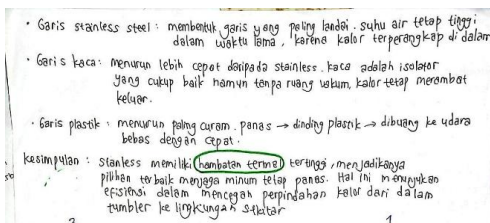 • Garis stainless steel : membentuk garis yang paling landai. suhu air tetap tinggi
dalam waktu lama, karena kalor terperangkap di dalam
• Garis kaca : menurun lebih cepat daripada stainless. kaca adalah isolator
yang cukup baik namun tanpa ruang vakum, kalor tetap merambat
keluar.
• Garis plastik : menurun paling curam. panas → dinding plastik → dibuang ke udara
bebas dengan cepat.
kesimpulan : stanless memiliki hambatan termal tertinggi, menjadikanya
pilihan terbaik menjaga minum tetap panas. Hal ini menunjukan
efisiensi dalam mencegah perpindahan kalor dari dalam
tumbler ke lingkungan sekitar